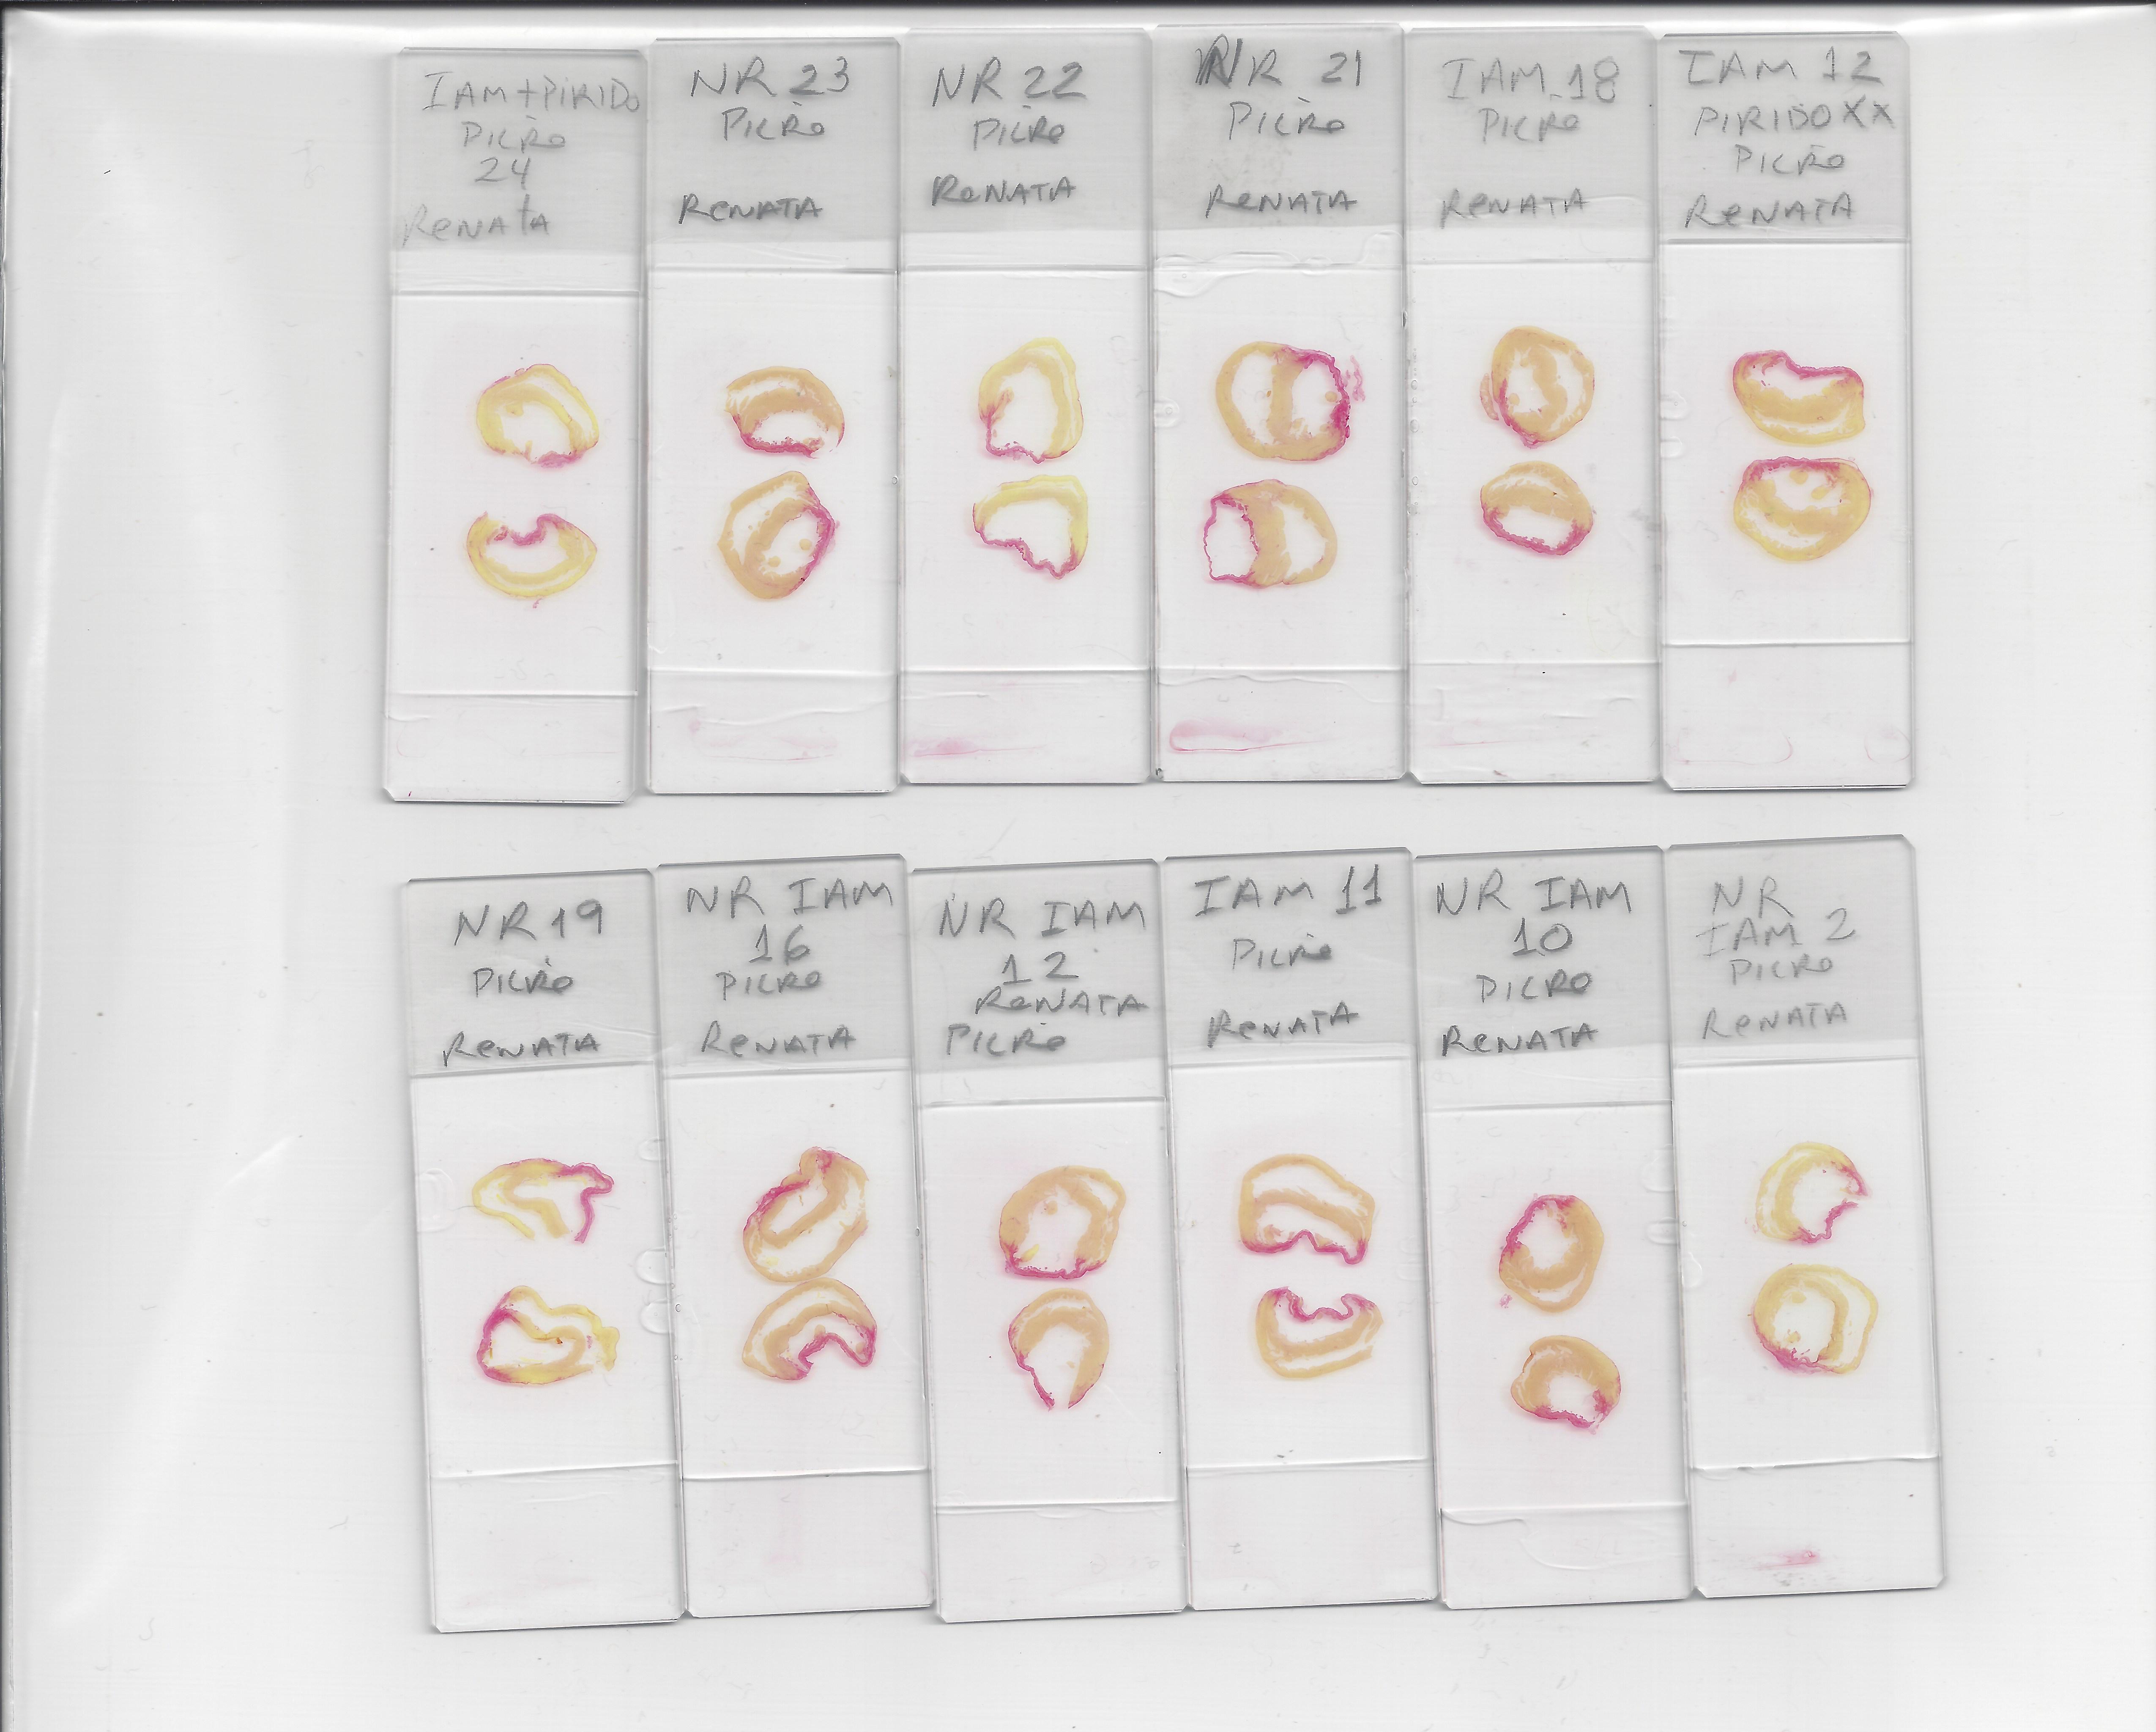 IAM+PIRIDO
PICRO
24
RENATA
NR 23
PICRO
RENATA
NR 22
PICRO
RENATA
NR 21
PICRO
RENATA
IAM-18
PICRO
RENATA
IAM 12
PIRIDOXX
PICRO
RENATA
NR 19
PICRO
RENATA
NR IAM
16
PICRO
RENATA
NR IAM
12
RENATA
PICRO
IAM 11
PICRO
RENATA
NR IAM
10
PICRO
RENATA
NR
IAM 2
PICRO
RENATA